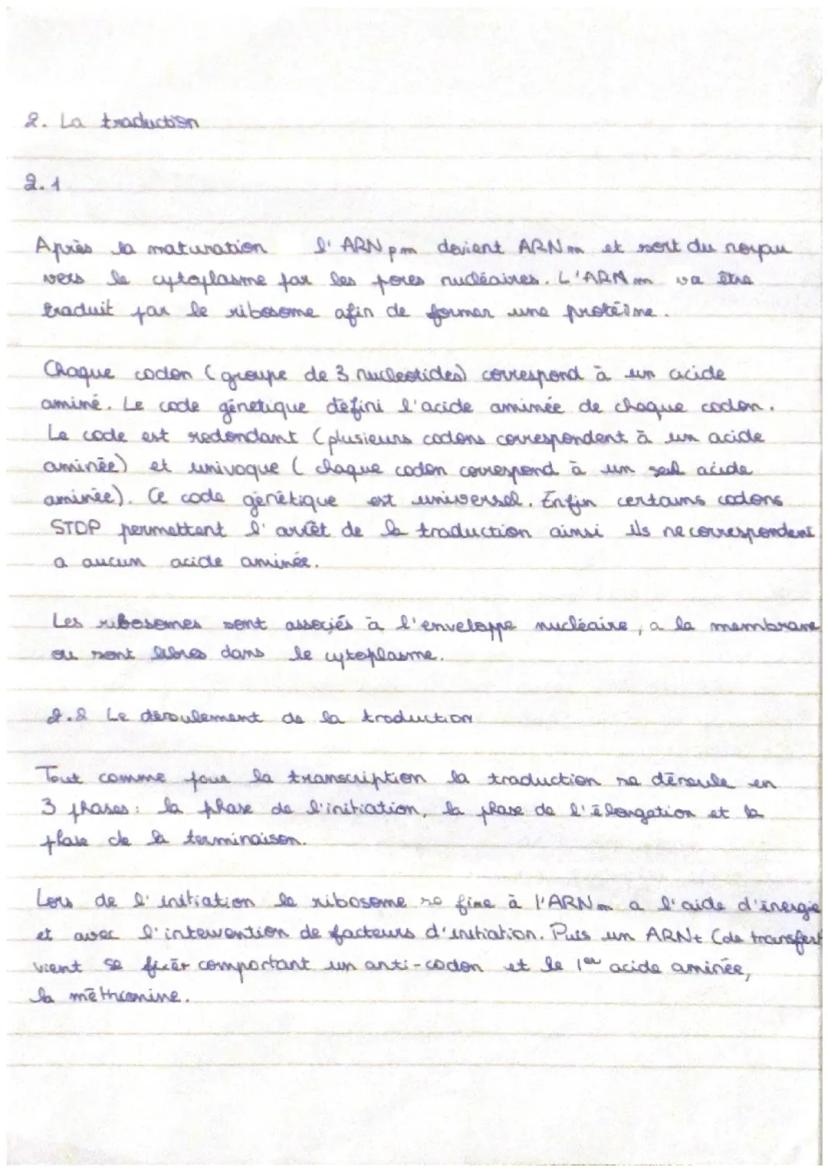 2. La traduction
2.1
Après la maturation l'ARN pm devient ARN m et sort du noyau
vers le cytoplasme par les pores nucléaires. L'ARN m va être
traduit par le ribosome afin de former une protéine.
Chaque codon (groupe de 3 nucleotides) correspond à un acide
aminé. Le code génétique défini l'acide aminée de chaque codon.
Le code est redondant (plusieurs codons correspondent à un acide
aminée) et univoque (chaque codon correspond à un seul acide
aminée). Ce code génétique est universel. Enfin certains codons
STOP permettent l'arrêt de la traduction ainsi ils ne correspondent
a aucun acide aminée.
Les ribosomes sont associés à l'enveloppe nucléaire, a la membrane
ou sont libres dans le cytoplasme.
2.2 Le déroulement de la traduction
Tout comme pour la transcription la traduction se déroule en
3 phases: la phase de l'initiation, la phase de l'élongation et la
phase de la terminaison.
Lors de l'initiation le ribosome se fixe à l'ARN m a l'aide d'énergie
et avec l'intervention de facteurs d'initiation. Puis un ARNt (de transfert
vient se fixer comportant un anti-codon et le 1er acide aminée,
la méthionine.